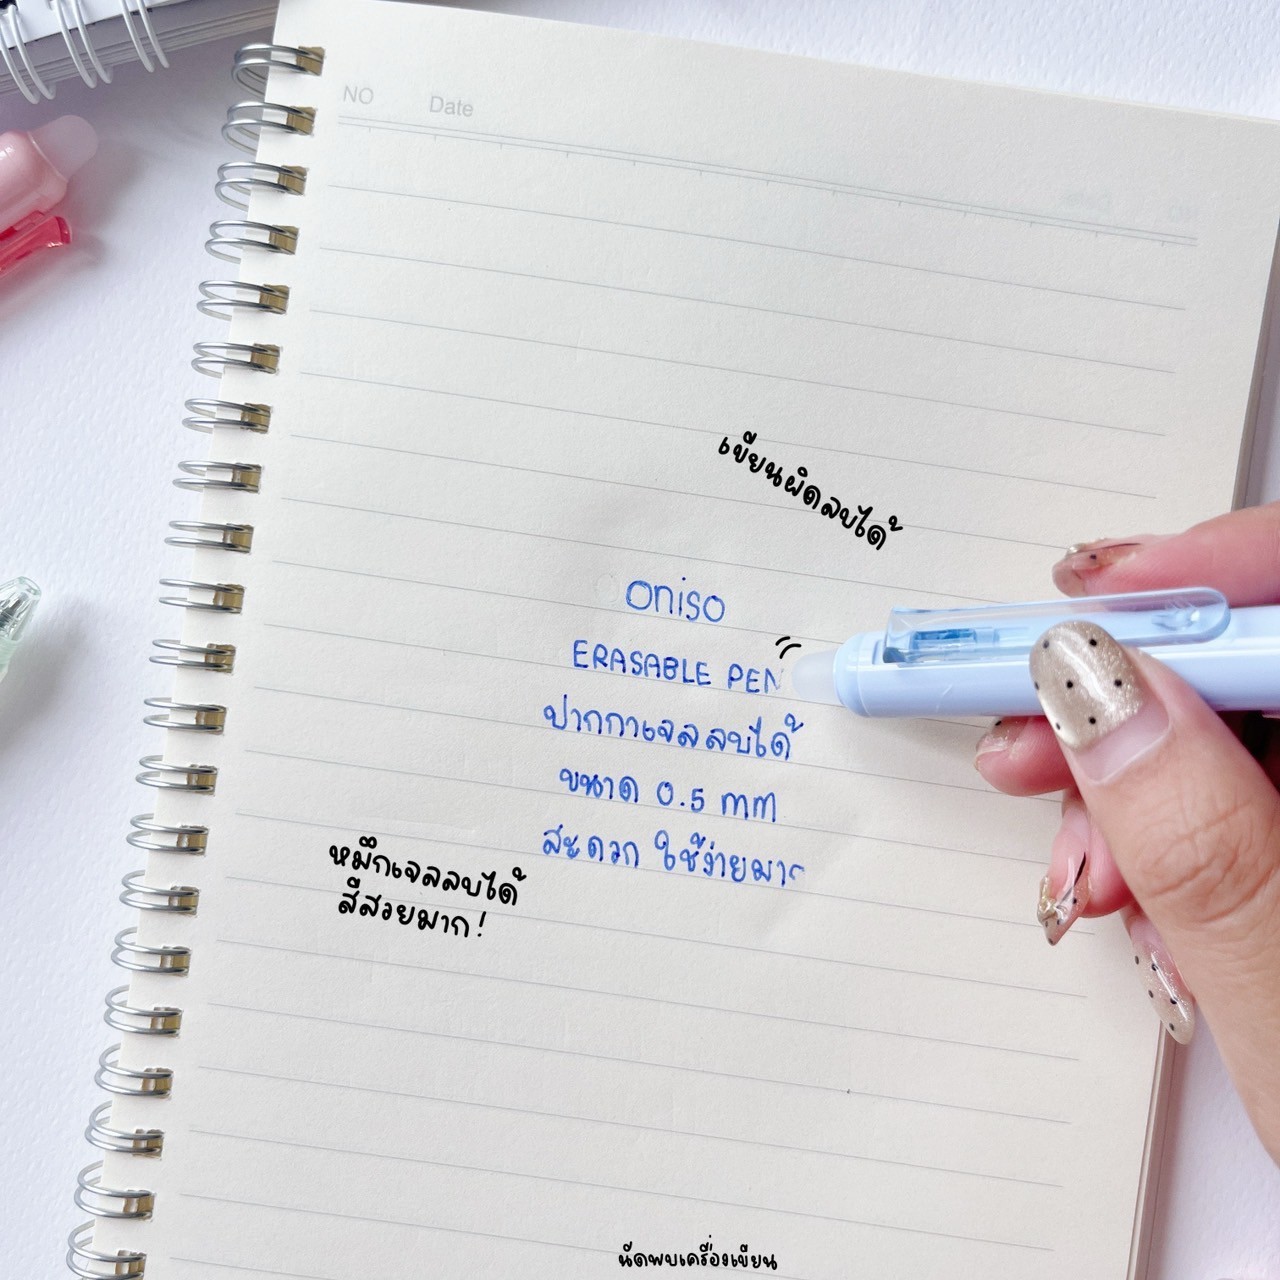 NO Date
เขียนผิดลบได้
oniso
ERASABLE PEN
ปากกาเจลลบได้
ขนาด 0.5 mm
สะดวก ใช้ง่ายมาก
หมึกเจลลบได้
สีสวยมาก!
นัดพบเครื่องเขียน